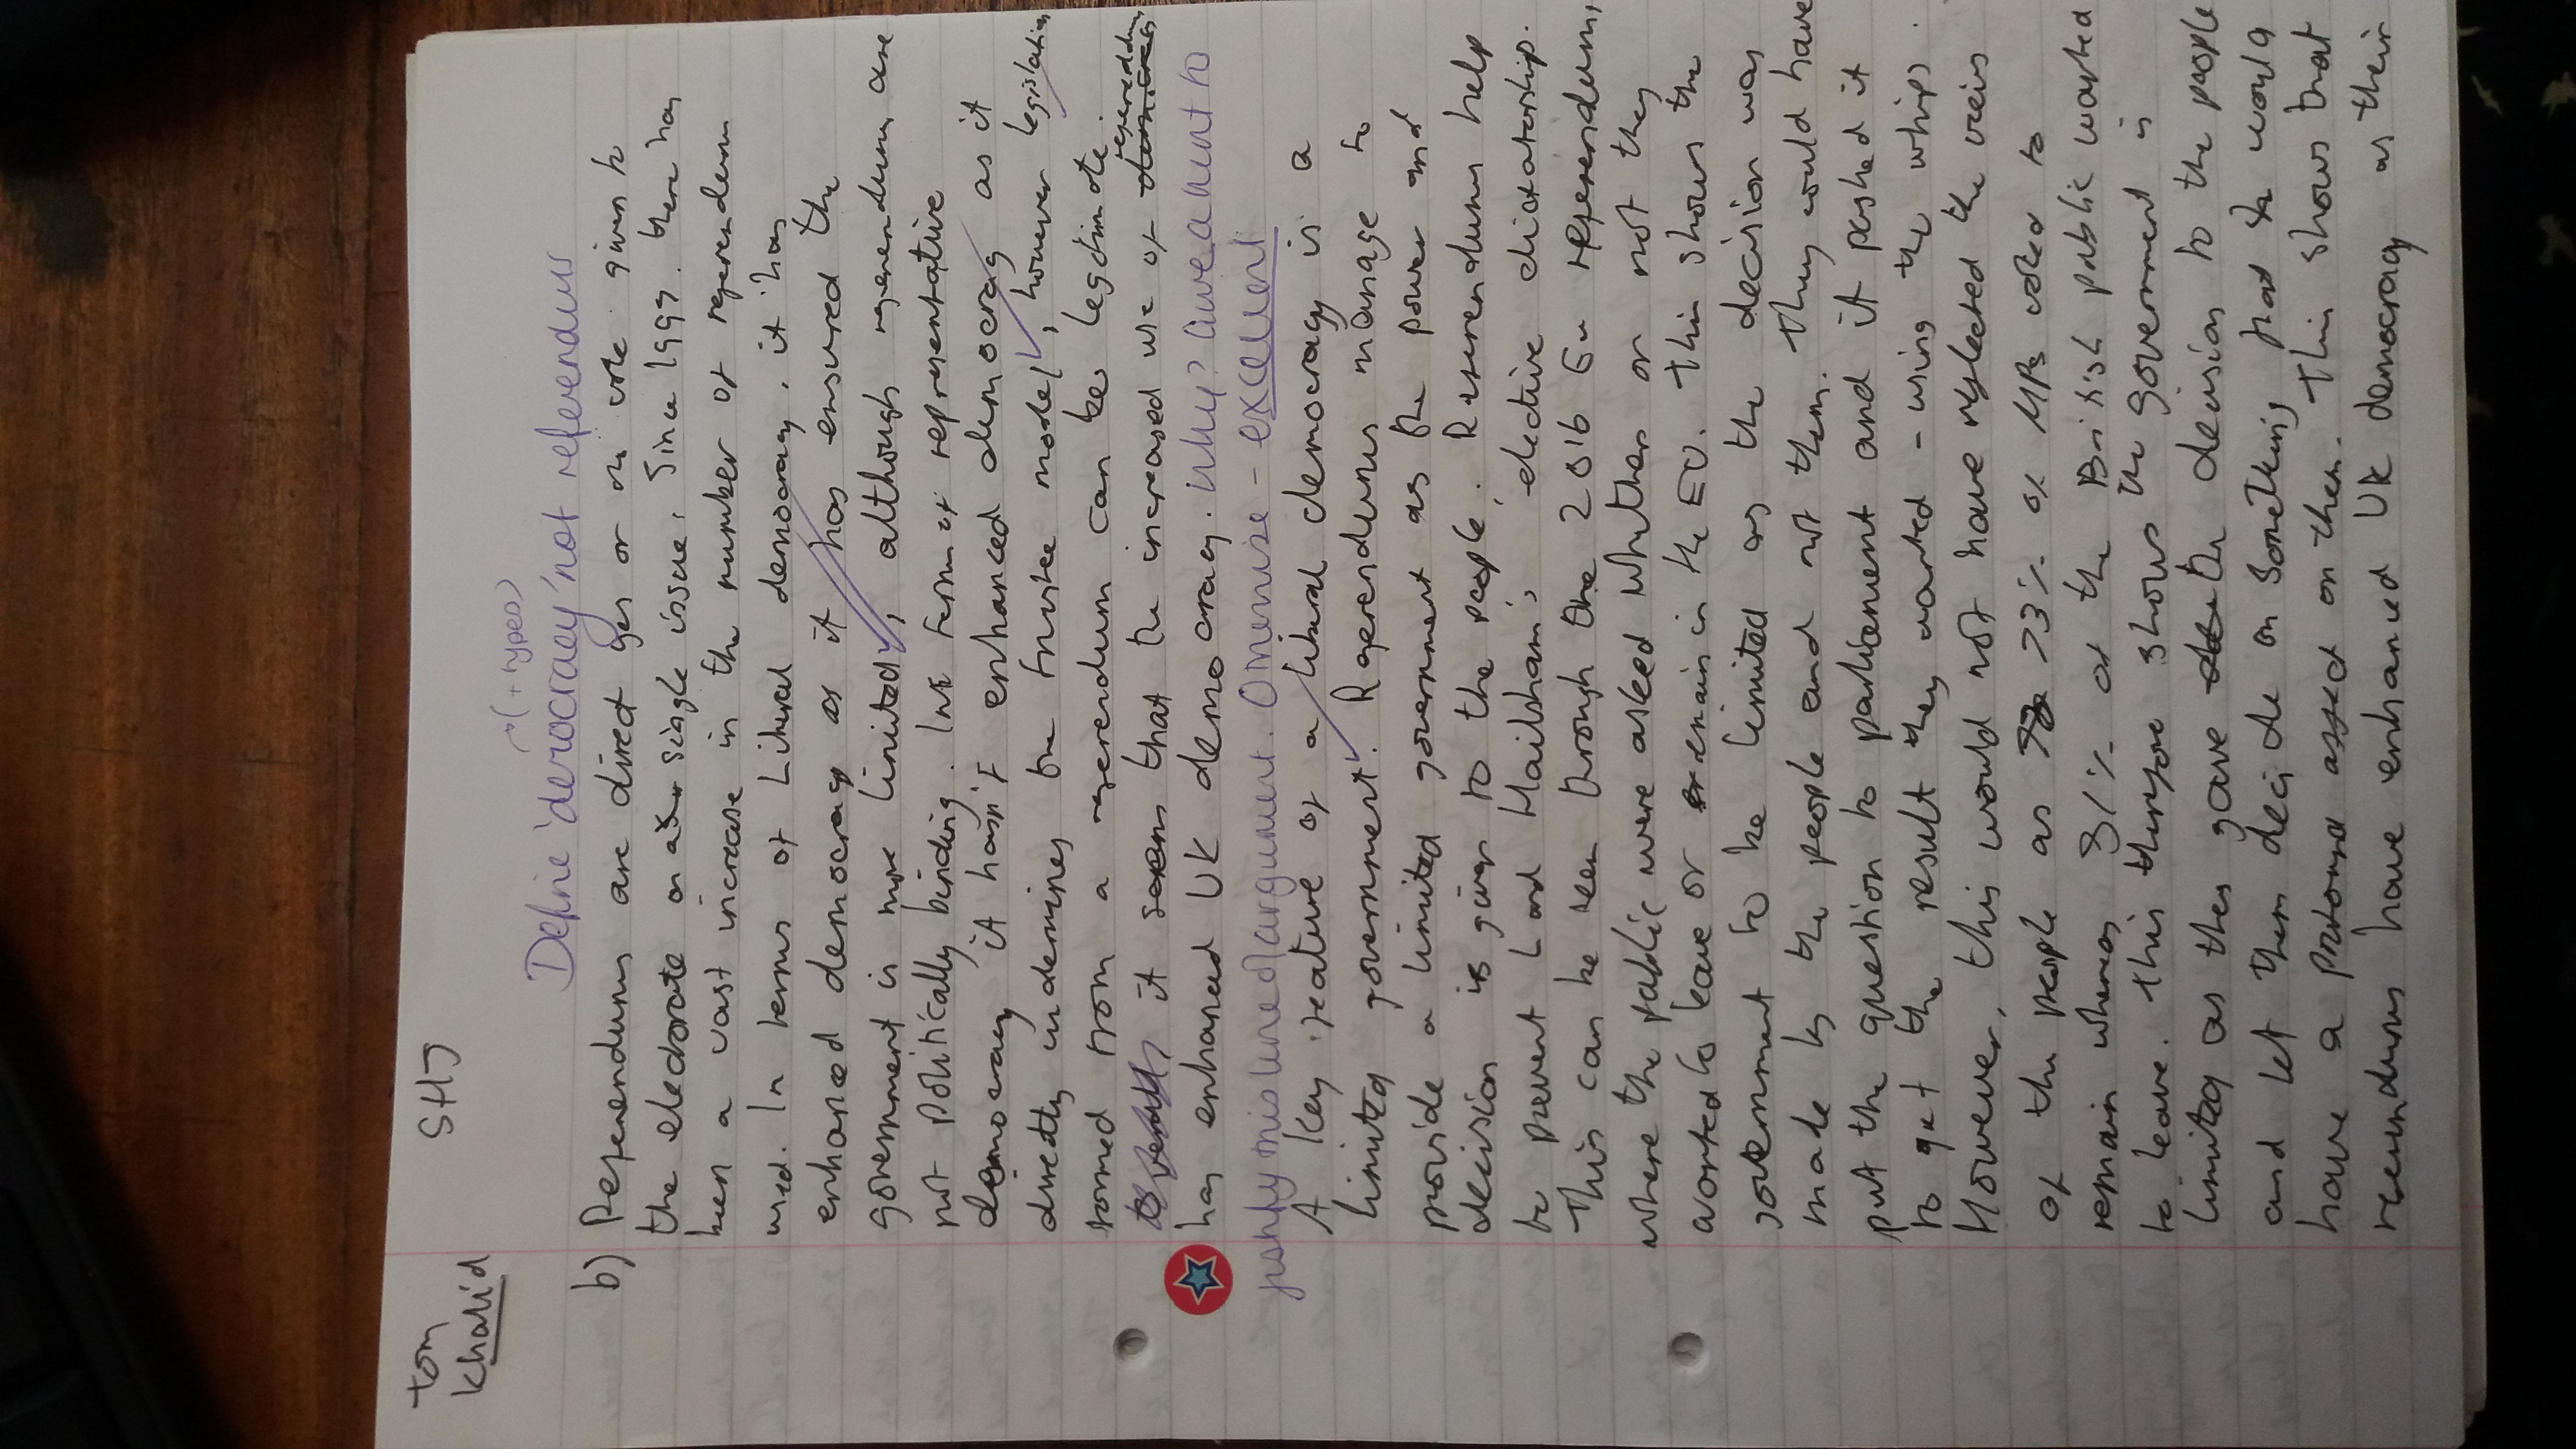 Tom
Khalid
SHJ
(+ types)
Define 'democracy' not referendum
b) Referendums are direct yes or no vote given to
the electorate on a single issue. Since 1997, there has
been a vast increase in the number of referendum
used. In terms of Liberal democracy, it has
enhanced democracy as it has ensured the
government is more limited, although referendum are
not politically binding. In a form of representative
democracy it hasn't enhanced democracy as it
directly undermines the trustee model, however legislation
formed from a referendum can be legitimate.
it seems that the increased use of referendums
has enhanced UK democracy. Why? Give a hint to
justify this line of argument. Otherwise - excellent
A key feature of a liberal democracy is a
limited government. Referendums manage to
provide a limited government as the power and
decision is given to the people. Referendums help
to prevent Lord Hailsham's 'elective dictatorship'.
This can be seen through the 2016 EU referendum,
where the public were asked whether or not they
wanted to leave or remain in the EU. This shows the
government to be limited as the decision was
made by the people and not them. They could have
put the question to parliament and if pushed it
to get the result they wanted - using the whips.
However, this would not have reflected the views
of the people as 73% of MPs voted to
remain whereas 51% of the British public wanted
to leave. This therefore shows the government is
limited as they gave the decision to the people
and let them decide on something that would
have a profound affect on them. This shows that
referendums have enhanced UK democracy as their